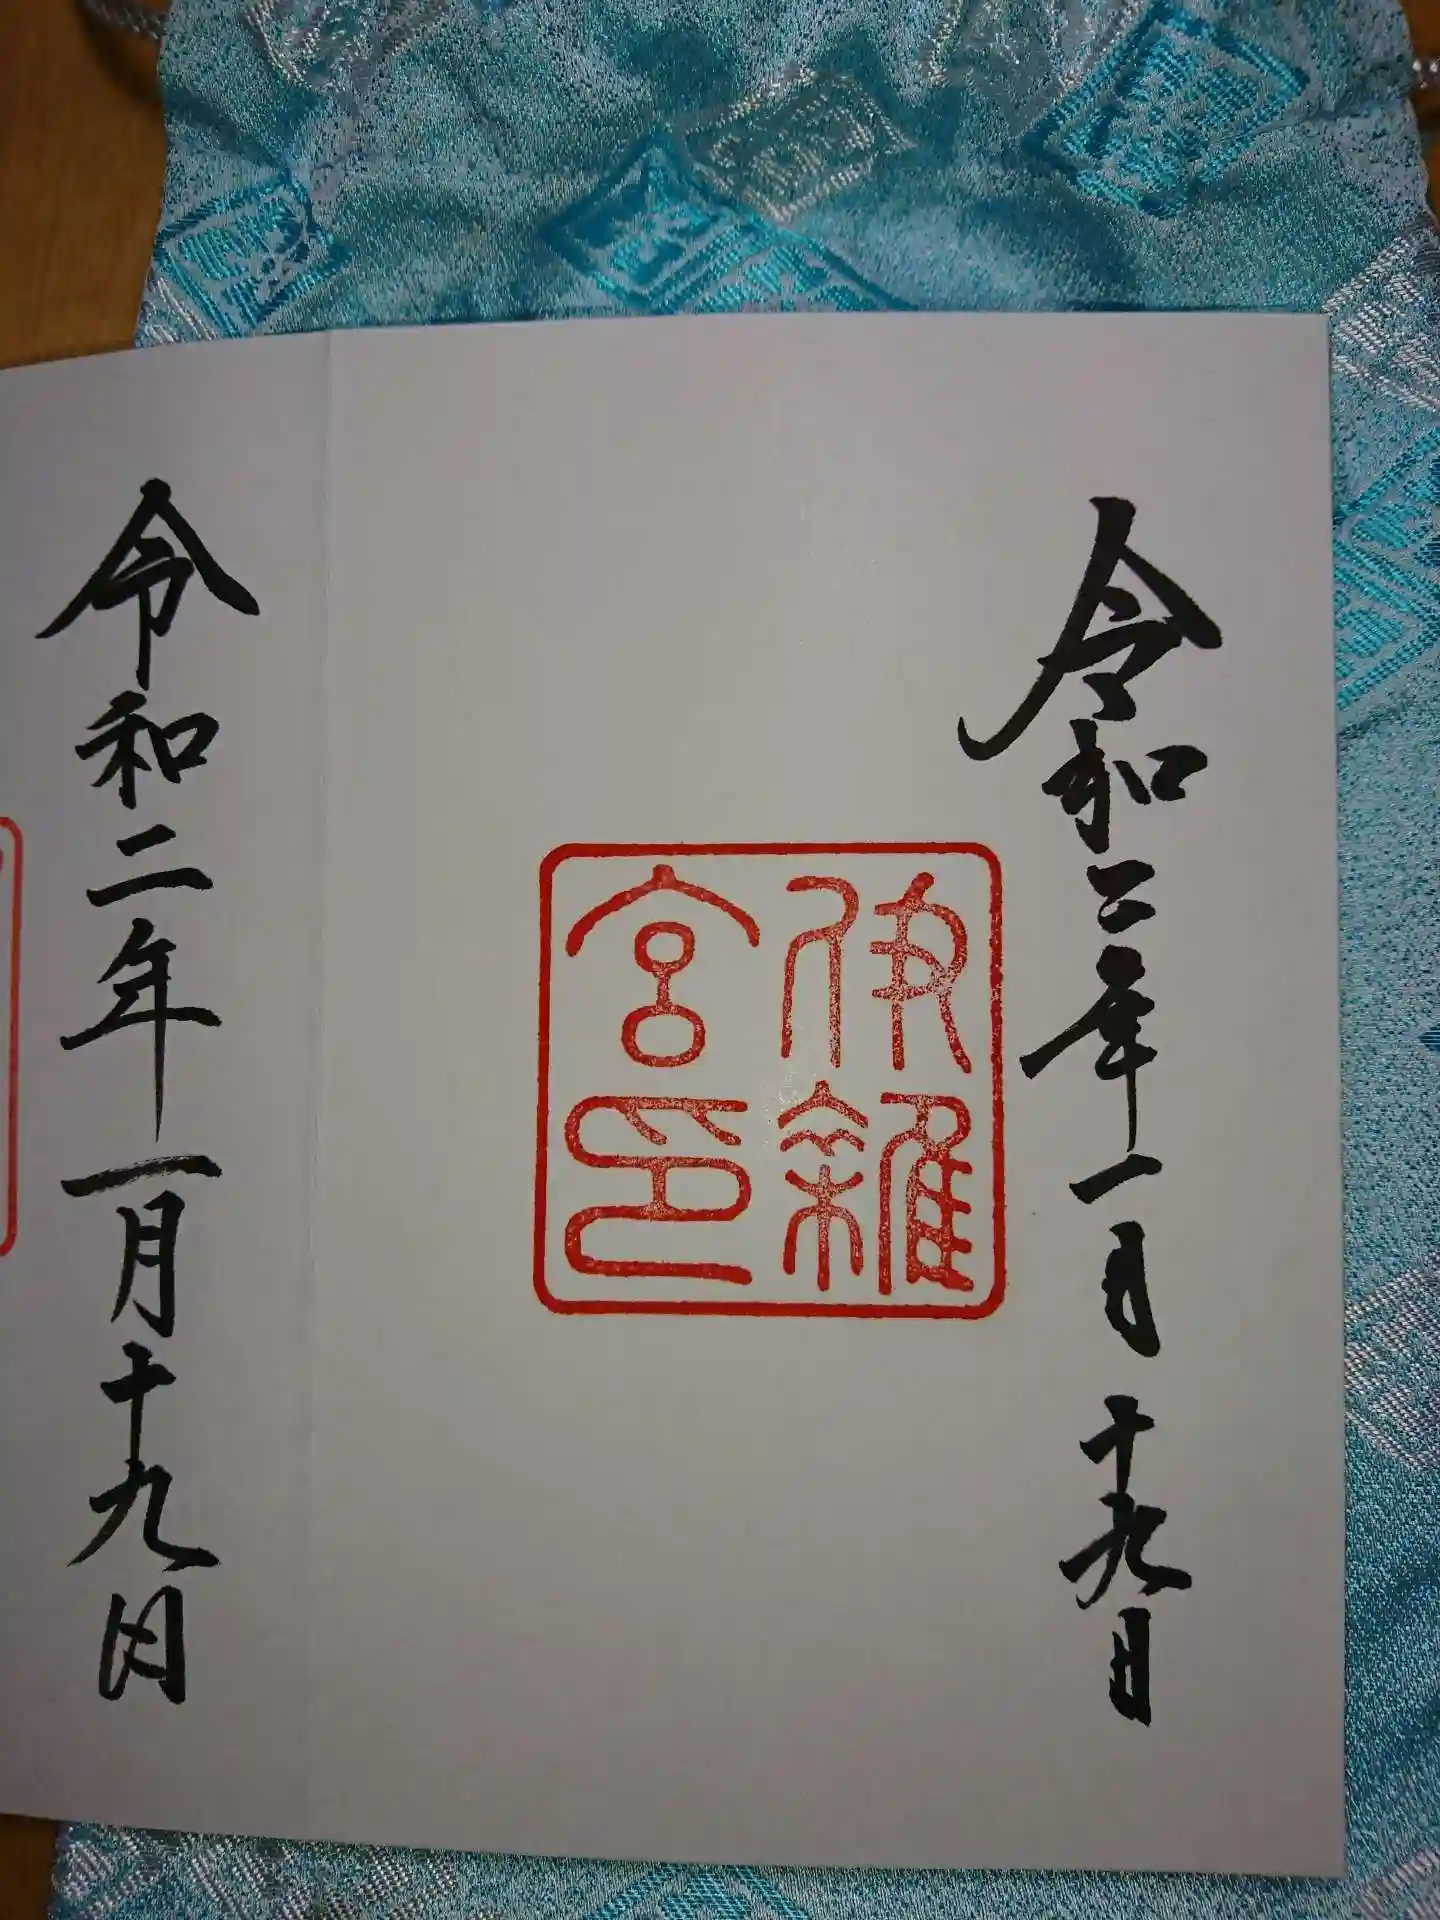 令和二年一月十九日
伊雜
宮印
令和二年一月十九日